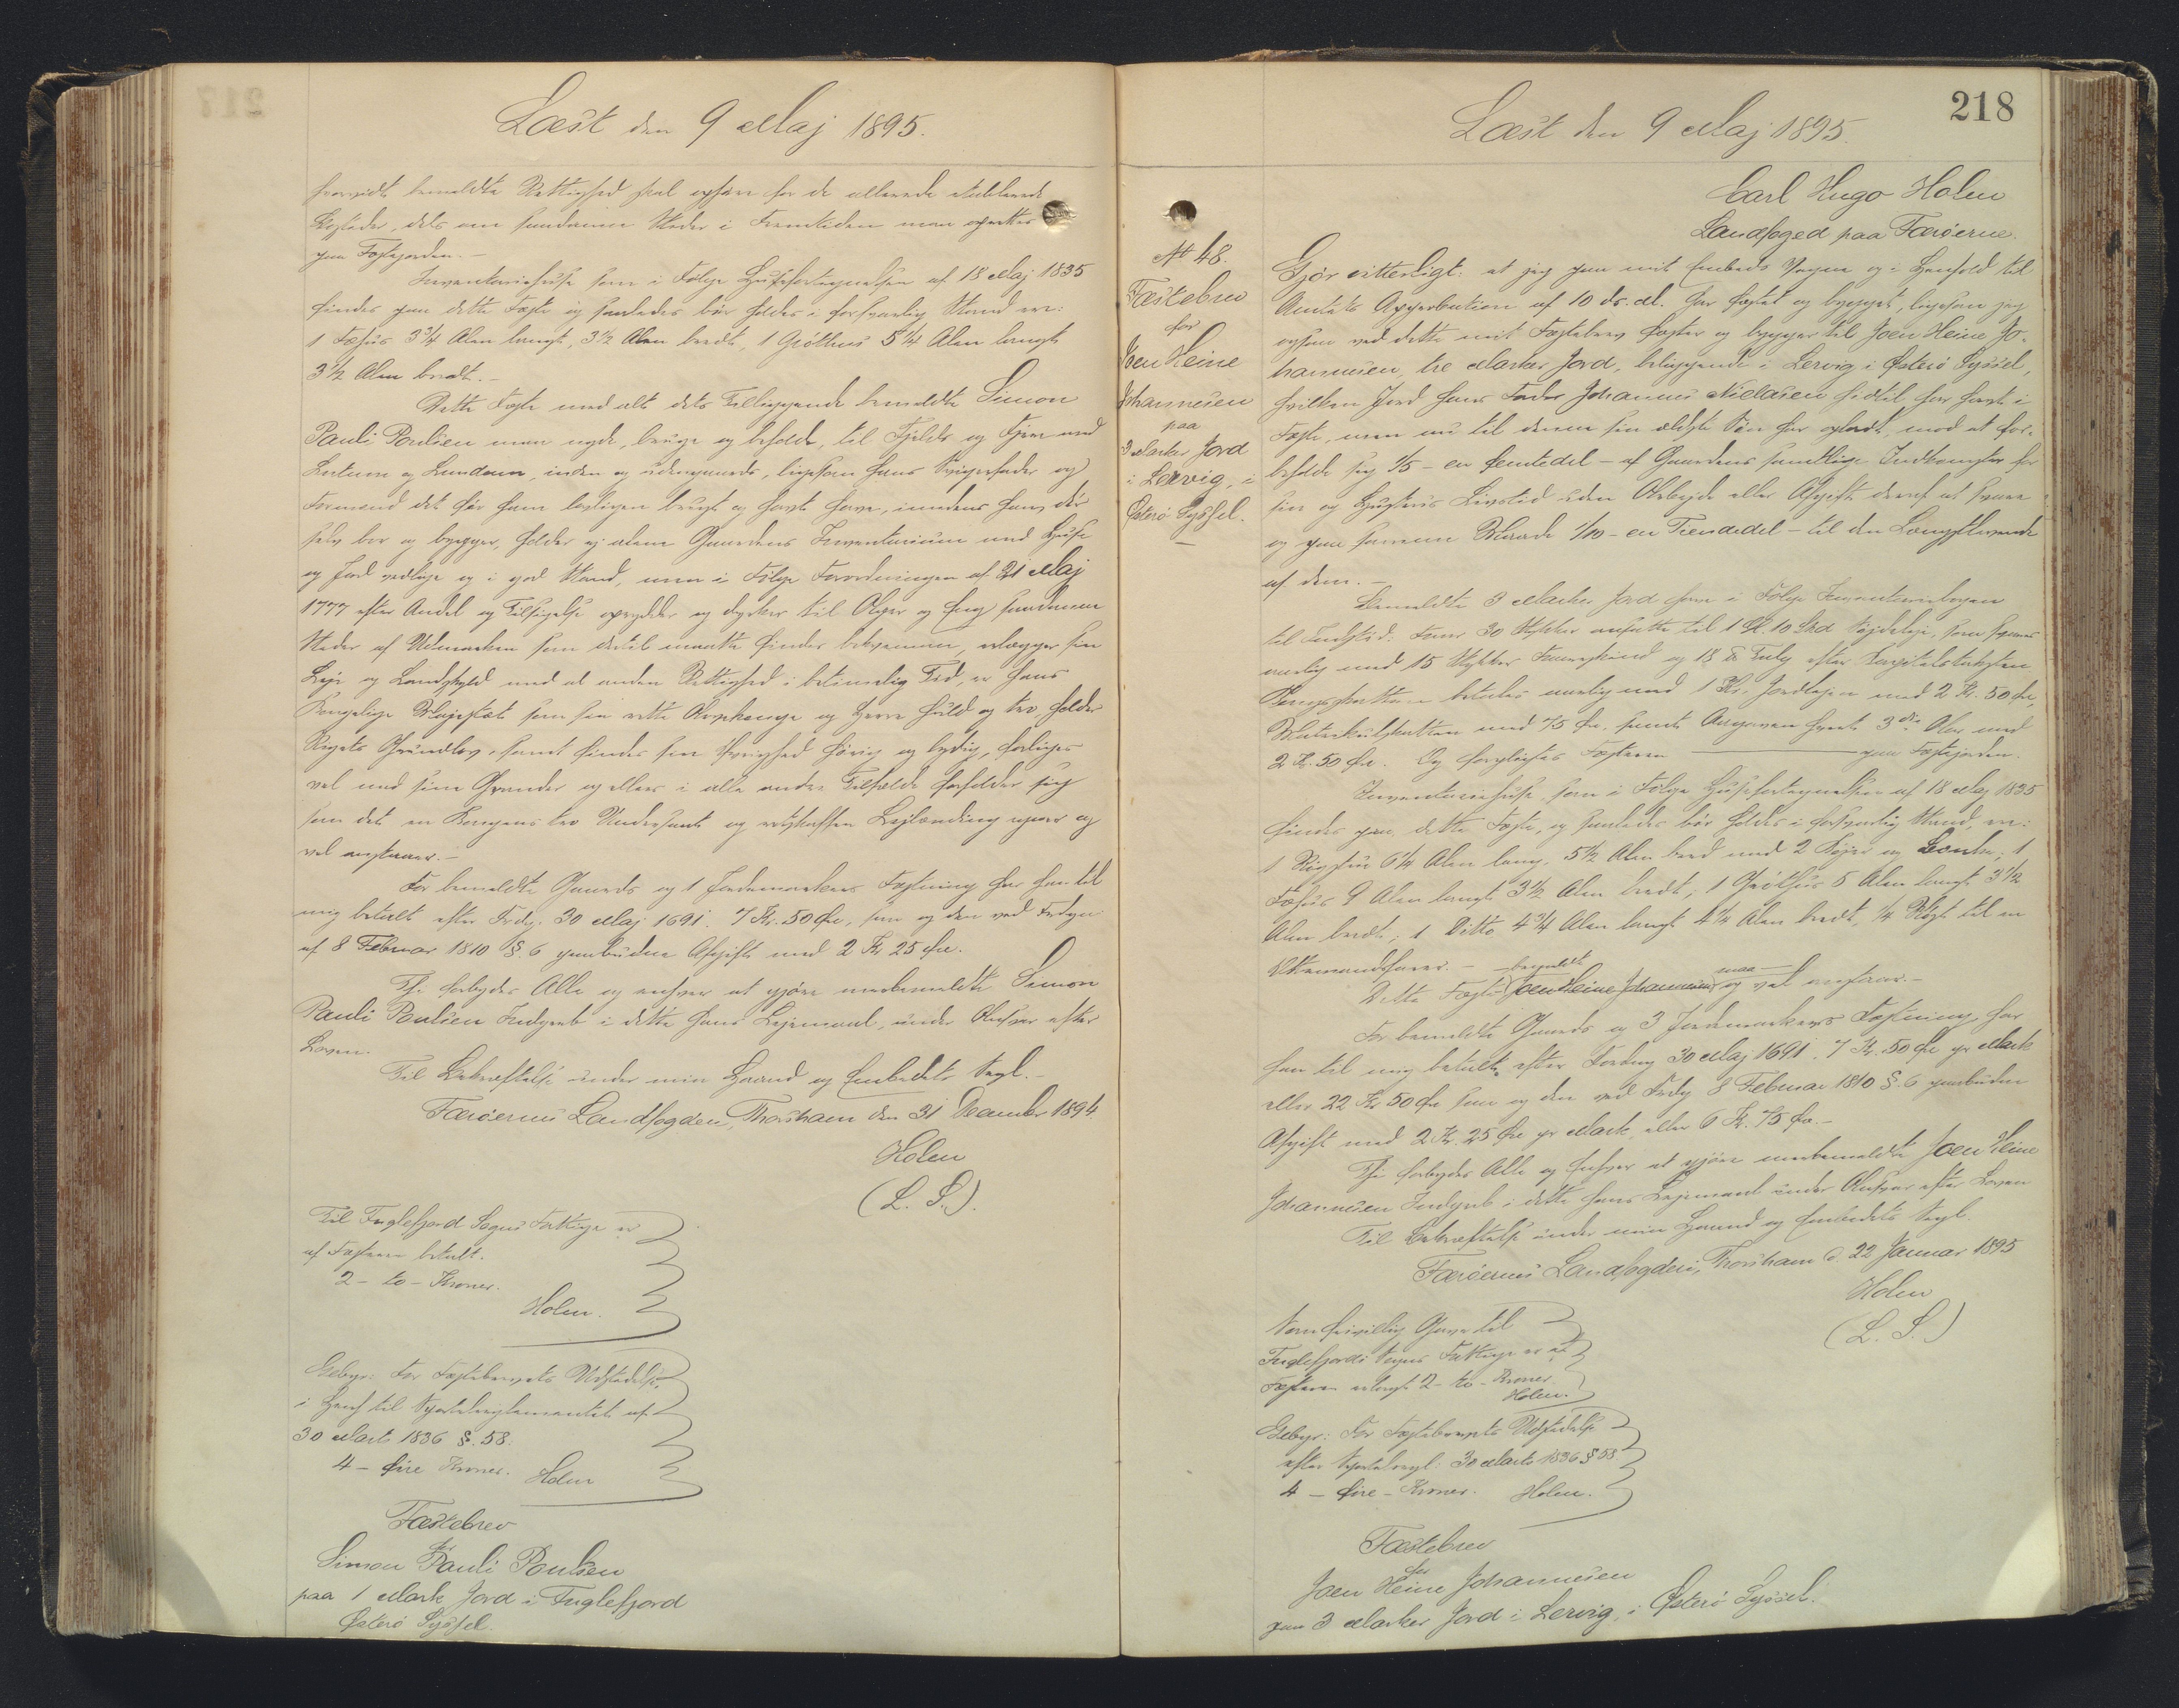 Læst den 9 Maj 1895.
hvorvidt bemeldte Rettighed skal ophøre for de allerede etablerede
Bosteder, dels om saadanne Steder i Fremtiden maa oprettes
paa Fæstejorden.-
Inventariehuse som i Følge Husefortegnelsen af 18 Maj 1835
findes paa dette Fæste og saaledes bør holdes i forsvarlig Stand ere:
1 Fæhus 3 3/4 Alen langt, 3 1/2 Alen bredt, 1 Gróthus 5 1/4 Alen langt
3 1/2 Alen bredt.-
Dette Fæste med alt dets Tilliggende bemeldte Simon
Pauli Poulsen maa nyde, bruge og beholde, til Fjelds og Fjære med
Lutum og Lundum, inden og udengaards, ligesom hans Svigerfader og
Formænd det før ham lovligen brugt og havt have, imedens han dér
selv bor og bygger, holder ej alene Gaardens Inventarium med Huse
og Jord vedlige og i god Stand, men i Følge Forordningen af 21 Maj
1777 efter Andel og Tilsigelse oprydder og dyrker til Ager og Eng saadanne
Steder af Udmarken som dertil maatte findes bekvemme, erlægger sin
Leje og Landskyld med al anden Rettighed i betimelig Tid, er Hans
Kongelige Majestæt som sin rette Arvekonge og Herre huld og tro, holder
Rigets Grundlov, samt findes sin Øvrighed hørig og lydig, forliges
vel med sine Grander og ellers i alle andre Tilfælde forholder sig
som det en Kongens tro Undersaat og retskaffen Lejlænding egner og
vel anstaaer.-
For bemeldte Gaards og 1 Jordemarkens Fæstning har han til
mig betalt efter Frdg. 30 Maj 1691. 7 Kr. 50 Øre, som og den ved Frdgn
af 8 Februar 1810 §. 6 paabudne Afgift med 2 Kr 25 Øre.
Thi forbydes Alle og enhver at gjøre merbemeldte Simon
Pauli Poulsen Indgreb i dette hans Lejemaal, under Ansvar efter
Loven.
Til Bekræftelse under min Haand og Embedets Segl.-
Færøernes Landfogderi, Thorshavn den 31 December 1894
Holen
(L. S.).
Til Fuglefjord Sogns Fattige er
af Fæsteren betalt.
2 - to - Kroner.
Holen.
Gebyr: For Fæstebrevets Udstedelse
i Henh. til Sportelreglementet af
30 Marts 1836 §. 58:
4 - fire Kroner. Holen
Fæstebrev
for
Simon Pauli Poulsen
paa 1 Mark Jord i Fuglefjord
Østerø Syssel.
218
Læst den 9 Maj 1895.
No 48.
Fæstebrev
for
Joen Heine
Johannesen
paa
3 Marker Jord
i Lervig, i
Østerø Syssel.
Carl Hugo Holen
Landfoged paa Færøerne.
Gjør vitterligt: at jeg paa mit Embeds Vegne og i Henhold til
Amtets Approbation af 10 ds. M. har fæstet og bygget, ligesom jeg
ogsaa ved dette mit Fæstebrev fæster og bygger til Joen Heine Jo-
hannesen, tre Marker Jord, beliggende i Lervig i Østerø Syssel,
hvilken Jord hans Fader Johannes Niclasen hidtil har havt i
Fæste, men nu til denne sin ældste Søn har opladt, mod at for-
beholde sig 1/5 - en femtedel - af Gaardens samtlige Indkomster for
sin og Hustrus Livstid uden Arbejde eller Afgift deraf at svare
og paa samme Maade 1/10 - en Tiendedel - til den Længstlevende
af dem.-
Bemeldte 3 Marker Jord have i Følge Inventariebogen
til Indsted: Faar 30 Stykker ansatte til
aarlig med 15 Stykker Faareskind og 18 ℔ Talg efter Kapitelstaksten
Kongsskatten betales aarlig med 1 Kr, Jordlejen med 2 Kr. 50 Øre,
Matrikulskatten med 75 Øre samt Avgaven hvert 3die Aar med
2 Kr. 50 Øre. Og forpligtes Fæsteren ——— paa Fæstejorden.
Inventariehuse, som i Følge Husefortegnelsen af 18 Maj 1835
findes paa dette Fæste, og saaledes bør holdes i forsvarlig Stand, ere:
1 Røgstue 6 1/4 Alen lang, 5 1/2 Alen bred med 2 Køjer og Bænke; 1
Fæhus 9 Alen langt 3 1/2 Alen bredt; 1 Gróthus 5 Alen langt 3 1/2
Alen bredt; 1 Ditto 4 3/4 Alen langt 4 1/4 Alen bredt, 1/4 Part til en
Ottemandsfarer.-
Dette Fæste bemeldte Joen Heine Johannesen maa — og vel anstaar.-
For bemeldte Gaards og 3 Jordemarkers Fæstning har
han til mig betalt efter Forordng 30 Maj 1691. 7 Kr. 50 Øre pr Mark
eller 22 Kr 50 Øre som og den ved Frdg 8 Februar 1810 §. 6 paabudne
Afgift med 2 Kr. 25 Øre pr Mark, eller 6 Kr. 75 Øre.-
Thi forbydes Alle og Enhver at gjøre merbemeldte Joen Heine
Johannesen Indgreb i dette hans Lejemaal under Ansvar efter Loven
Til Bekræftelse under min Haand og Embedets Segl.
Færøernes Landfogderi, Thorshavn d. 22 Januar 1895
Holen
(L. S.)
Som frivillig Gave til
Fuglefjords Sogns Fattige er af
Fæsteren erlagt 2 - to - Kroner.
Holen.
Gebyr: For Fæstebrevets Udstedelse
efter Sportelregl: 30 Marts 1836 § 58
4 - fire - Kroner. Holen.
Fæstebrev
for
Joen Heine Johannesen
paa 3 Marker Jord i Lervig, i Østerø Syssel.